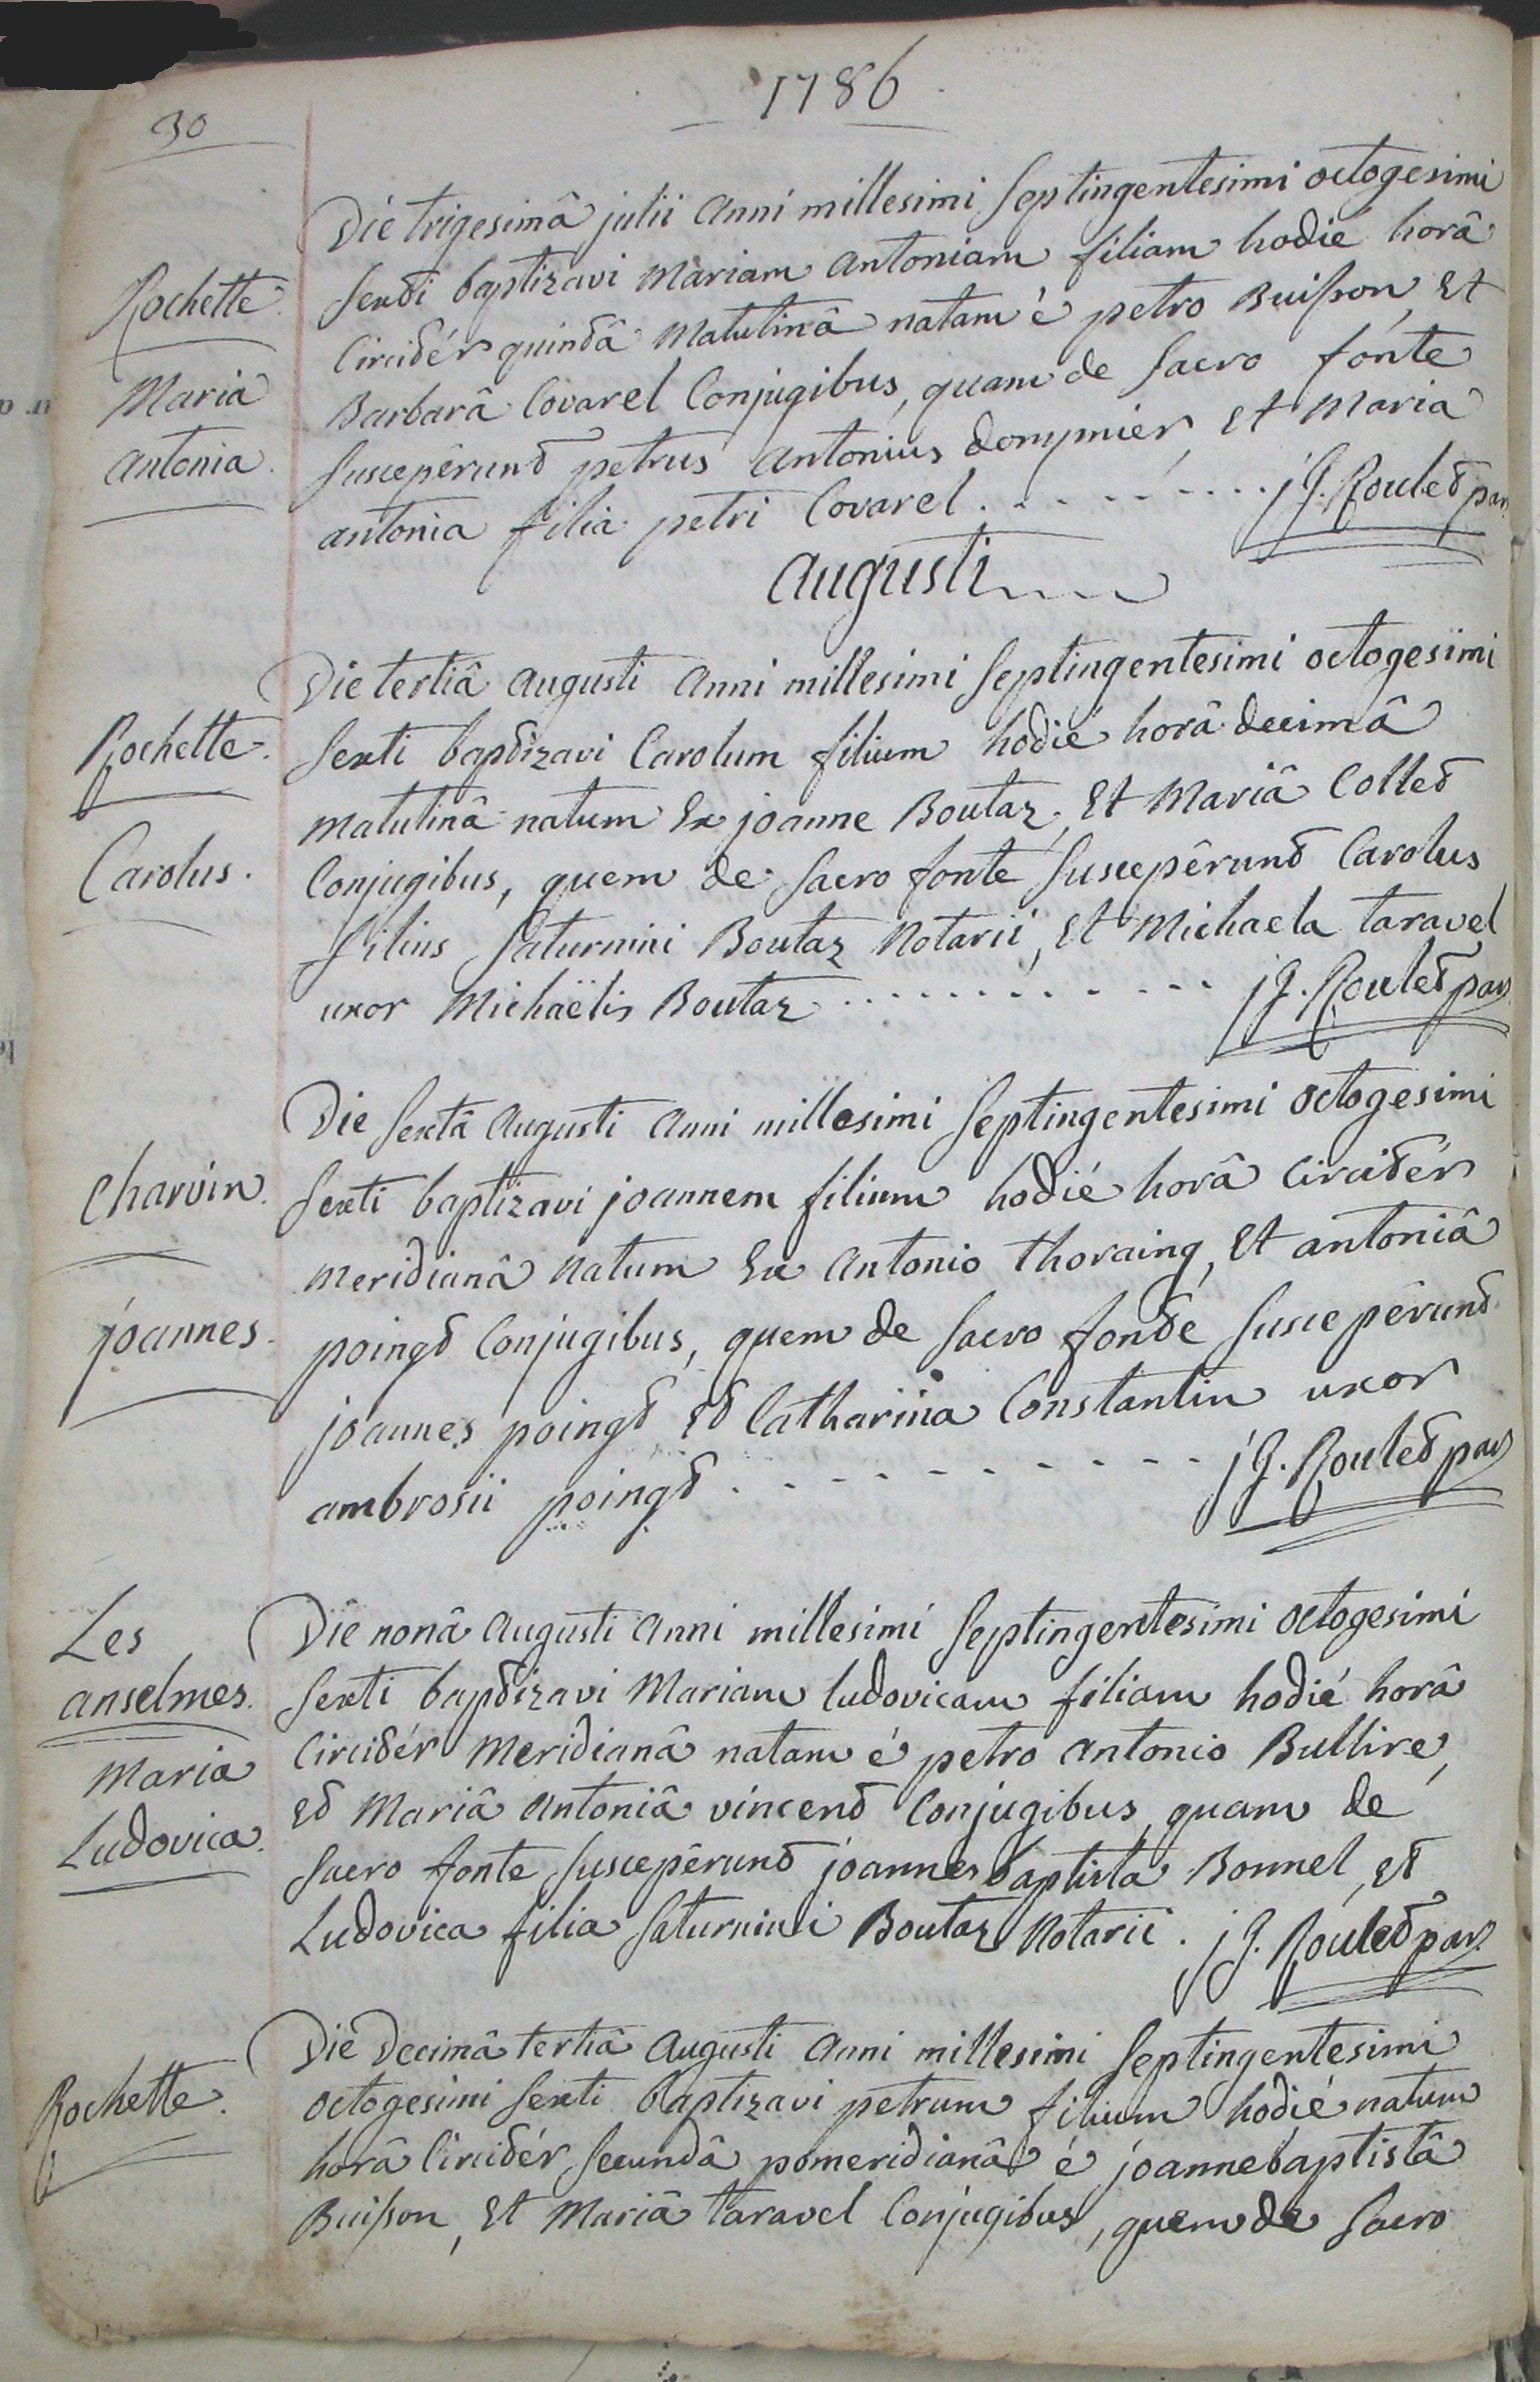 1786
30
Die trigesimâ julii anni millesimi septingentesimi octogesimi
Rochette.
sexti baptizavi Mariam antoniam filiam hodié horâ
circitér quintâ matutinâ natam é petro Buisson, Et
Maria
Barbarâ Covarel Conjugibus, quam de sacro fonte
antonia.
suscepêrunt petrus antonius dompnier, et Maria
antonia filia petri Covarel. . . . . . . . . . j J. Roulet par
augusti
Die tertiâ augusti anni millesimi septingentesimi octogesimi
Rochette.
sexti baptizavi Carolum filium hodié horâ decimâ
matutinâ natum Ex joanne Boutaz, Et Mariâ Collet
Carolus.
Conjugibus, quem de sacro fonte suscepêrunt Carolus
filius saturnini Boutaz Notarii, et Michaela taravel
uxor Michaëlis Boutaz . . . . . . . . . . . . . j J. Roulet par
Die sextâ augusti anni millesimi septingentesimi octogesimi
Charvin.
sexti baptizavi joannem filium hodié horâ circitér
meridianâ natum Ex antonio thoraing, Et antoniâ
joannes.
poingt Conjugibus, quem de sacro fonte suscepêrunt
joannes poingt Et Catharina Constantin uxor
ambrosii poingt . . . . . . . . . . . j J. Roulet par
Les
Die nonâ augusti anni millesimi septingentesimi octogesimi
anselmes.
sexti baptizavi Mariam ludovicam filiam hodié horâ
circitér meridianâ natam é petro antonio Bullire,
Maria
Et Mariâ antoniâ vincent Conjugibus, quam de
Ludovica.
sacro fonte suscepêrunt joannes baptista Bonnel, et
Ludovica filia saturnini Boutaz Notarii. j J. Roulet par
Die decimâ tertiâ augusti anni millesimi septingentesimi
Rochette.
octogesimi sexti baptizavi petrum filium hodié natum
horâ circitér secundâ pomeridianâ é joannebaptistâ
Buisson, Et Mariâ taravel Conjugibus, quem de sacro